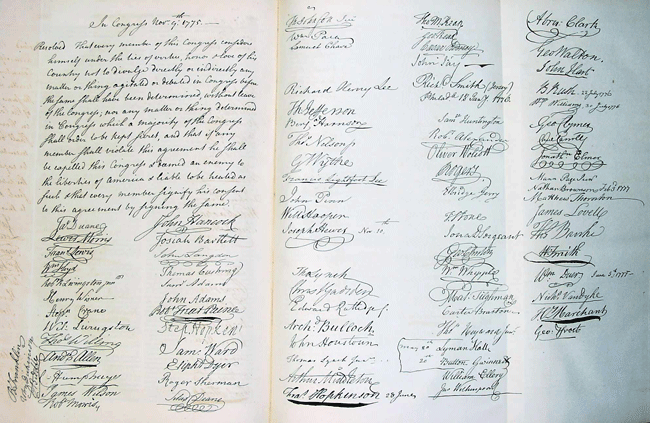 In Congress Nov. 9th 1775
Resolved That every member of this Congress considers
himself under the ties of virtue, honor & love of his
Country not to divulge directly or indirectly any
matter or thing agitated or debated in Congress before
the same shall have been determined, without leave
of the Congress; nor any matter or thing determined
in Congress which a majority of the Congress
shall order to be kept secret, and that if any
member shall violate this agreement he shall
be expelled this Congress & deemed an enemy to
the liberties of America & liable to be treated as
such & that every member signify his consent
to this agreement by signing the same.
Jas. Duane
Lewis Morris
Frans. Lewis
Wm. Floyd
Robt. R Livingston junr.
Henry Wisner
Steph Crane
Wil: Livingston
Thos. Willing
Andw. Allen
C Humphreys
James Wilson
Robt. Morris
John Hancock
Josiah Bartlett
John Langdon
Thomas Cushing
Saml. Adams
John Adams
Robt. Treat Paine
Step. Hopkins
Sam: Ward
Elipht. Dyer
Roger Sherman
Silas Deane
Wm. Paca
Samuel Chase
Richard Henry Lee
Th: Jefferson
Benj. Harrison
Ths. Nelson jr.
G Wythe
Francis Lightfoot Lee
John Penn
Will Hooper
Joseph Hewes Nov.
Tho. Lynch
Chris Gadsden
Edward Rutledge
Archd. Bulloch
John Houstoun
Thomas Lynch Junr.
Arthur Middleton
Fras. Hopkinson 28 June
Tho M:Kean
Geo Read
Caesar Rodney
John Jay
Richd. Smith (Jersey)
Saml. Huntington
Robt. Alexander
Oliver Wolcott
Elbridge Gerry
T Stone
Wm. Whipple
Carter Braxton
May 20th. Lyman Hall
20th. Button Gwinnett
William Ellery
Abra: Clark
Geo Walton
John Hart
B. Rush 22 July 1776
Wm. Williams
Geo. Clymer
Jonathn. Elmer
Mann Page Junr.
Nathan Brownson
Matthew Thornton
James Lovell
Thos. Burke
Wm. Duer
Nichs. Vandyke
H. Marchant